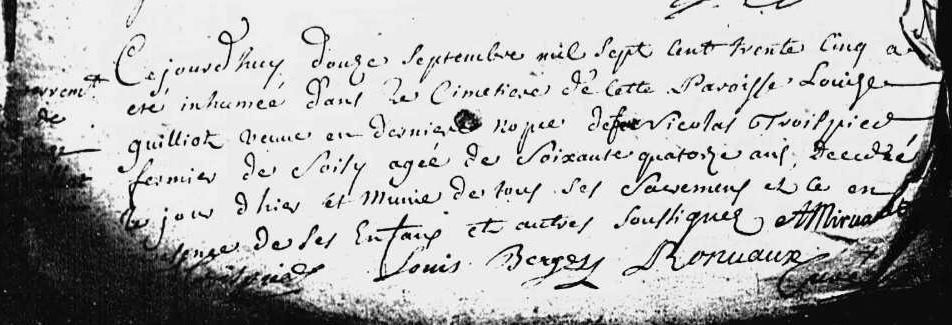 Cejourd'huy douze septembre mil sept cent trente cinq a
eté inhumeé dans le Cimetiere de cette Paroisse Louise
guilliot veuve en derniere nopce de Nicolas Troispied
fermier de Soisy agée de Soixante quatorze ans, decedeé
le jour d'hier et Munie de tous ses Sacremens et ce en
de ses Enfans et autres soussignez
Louis Berges